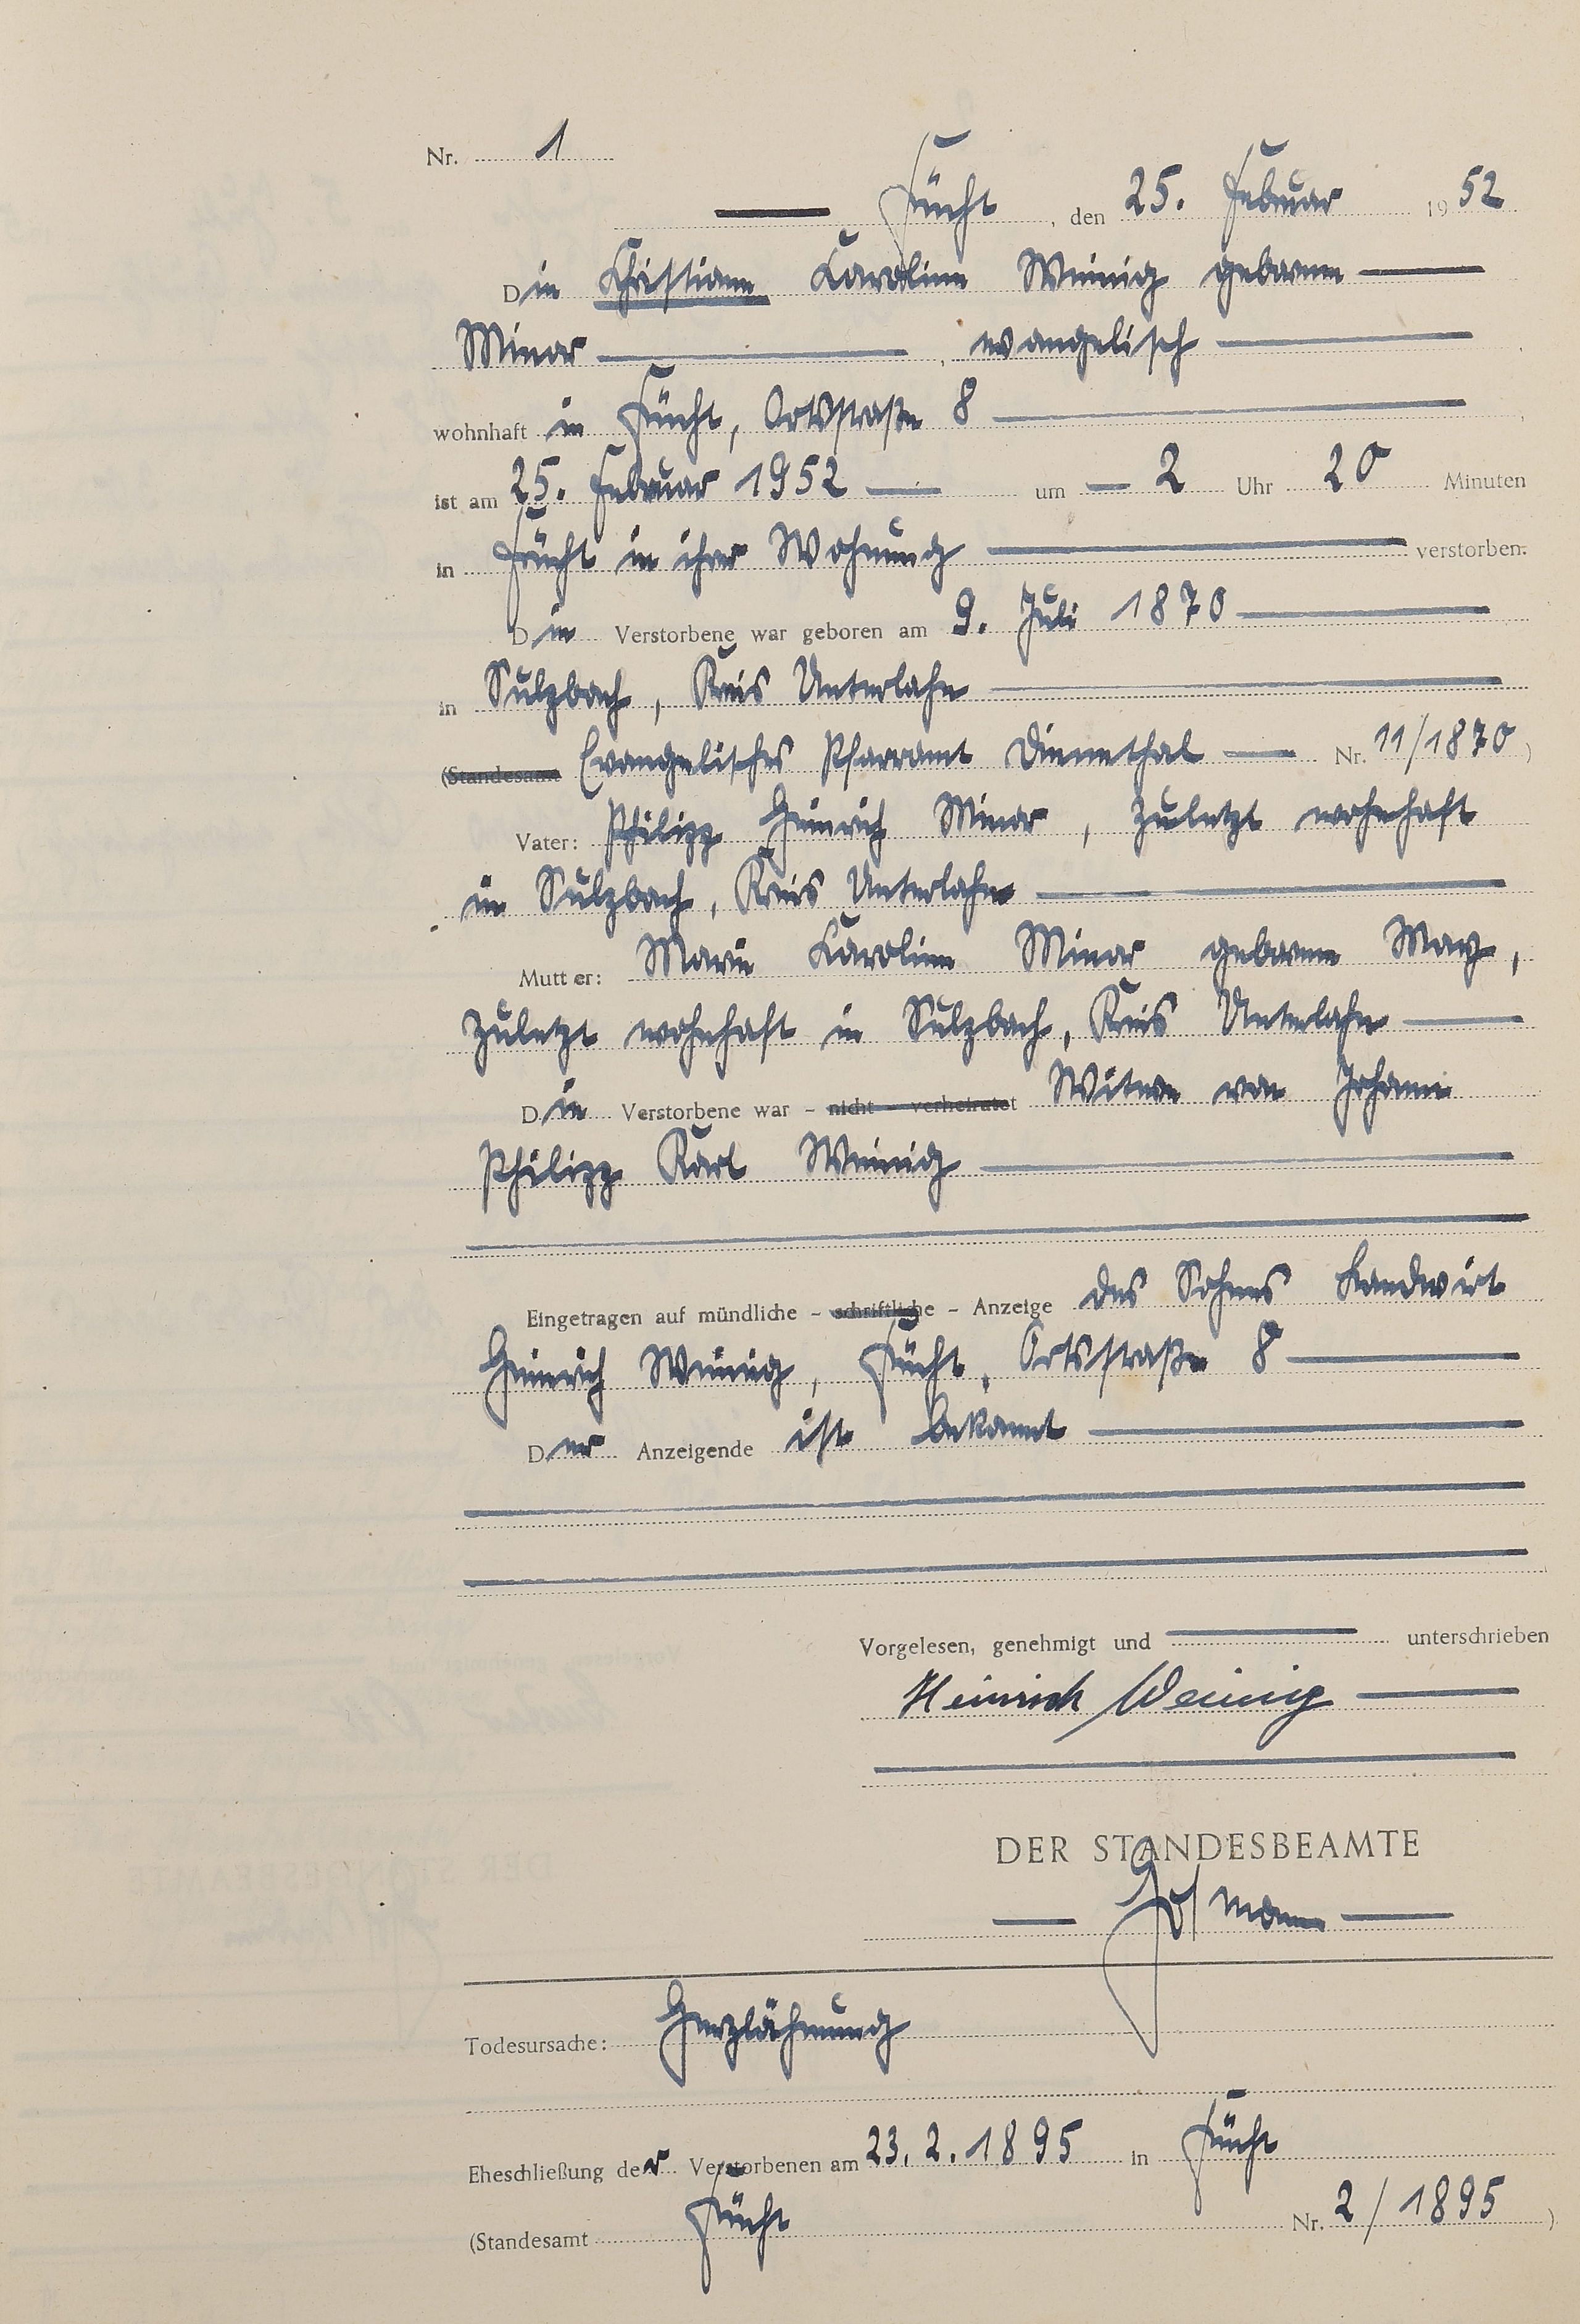 Nr. 1
Frücht, den 25. Februar 1952
Die Christiane Caroline Weinig geborene
Minor, evangelisch
wohnhaft in Frücht, Ortsstraße 8,
ist am 25. Februar 1952 um 2 Uhr 20 Minuten
in Frücht in ihrer Wohnung verstorben.
Die Verstorbene war geboren am 9. Juli 1870
in Sulzbach, Kreis Unterlahn
(Standesamt Evangelisches Pfarramt Dienethal Nr. 11/1870)
Vater: Philipp Heinrich Minor, zuletzt wohnhaft
in Sulzbach, Kreis Unterlahn
Mutter: Marie Caroline Minor geborene May,
zuletzt wohnhaft in Sulzbach, Kreis Unterlahn
Die Verstorbene war - nicht - verheiratet Witwe von Johann
Philipp Karl Weinig
Eingetragen auf mündliche - schriftliche - Anzeige des Sohnes Landwirt
Heinrich Weinig, Frücht, Ortsstraße 8
Der Anzeigende ist bekannt
Vorgelesen, genehmigt und unterschrieben
Heinrich Weinig
DER STANDESBEAMTE
Hofmann
Todesursache: Herzlähmung
Eheschließung der Verstorbenen am 23. 2. 1895 in Frücht
(Standesamt Frücht Nr. 2/1895)